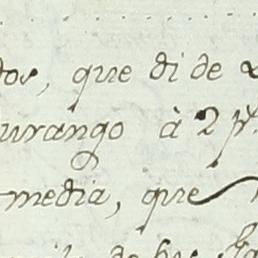 dos, que di de
urango à 2 p.
media, que